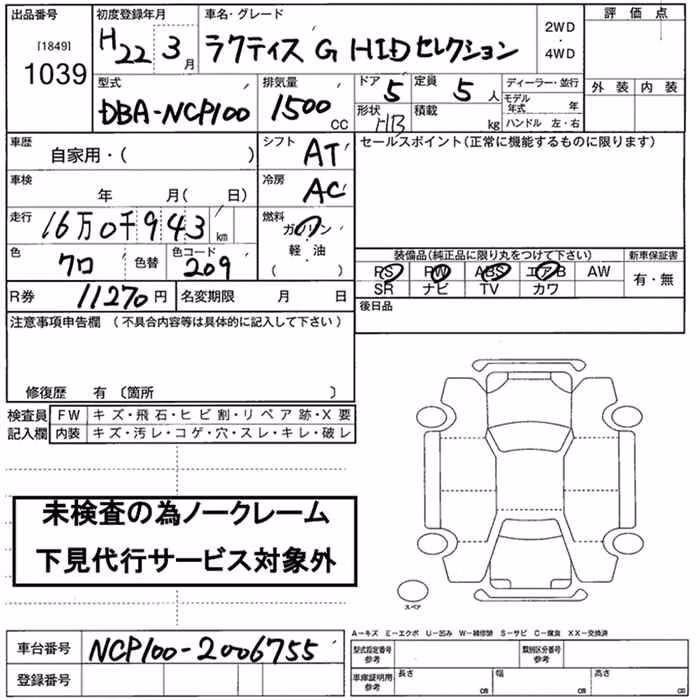 出品番号 初度登録年月 車名・グレード 評価点
[1849] 1039 H22 3月 ラクティス G HIDセレクション 2WD・4WD
外装 内装
型式 排気量 ドア 定員 ディーラー・並行
DBA-NCP100 1500CC 5 5人 モデル年式 年
形状 HB 積載 kg ハンドル 左・右
車歴 自家用・( ) シフト AT セールスポイント(正常に機能するものに限ります)
車検 年 月( 日) 冷房 AC
走行 16万0千943km 燃料 ガソリン
軽・油
( )
色 クロ 色替 色コード 209
装備品(純正品に限り丸をつけて下さい) 新車保証書
PS PW ABS エアB AW 有・無
SR ナビ TV カワ
R券 11270円 名変期限 月 日 後日品
注意事項申告欄 (不具合内容等は具体的に記入して下さい)
修復歴 有〔箇所 〕
検査員 FW キズ・飛石・ヒビ割・リペア跡・X要
記入欄 内装 キズ・汚レ・コゲ・穴・スレ・キレ・破レ
未検査の為ノークレーム
下見代行サービス対象外
スペア
A-キズ E-エクボ U-凹み W-補修跡 S-サビ C-腐食 XX-交換済
車台番号 NCP100-2006755 型式指定番号 参考 類別区分番号 参考
登録番号 車庫証明用 参考 長さ cm 幅 cm 高さ cm